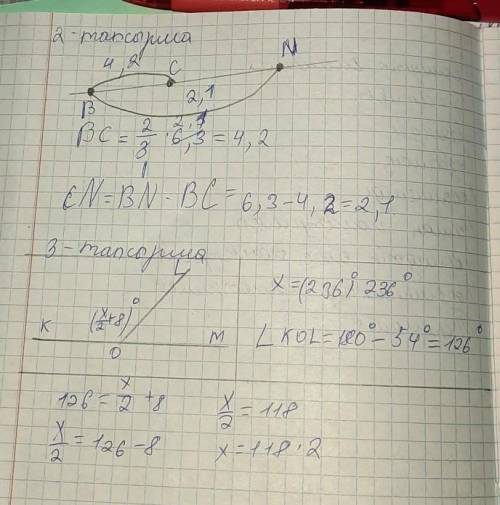 2-тапсырма
4,2
C
N
B
2,1
BC = 2/3 · 6,3 = 4,2
CN = BN - BC = 6,3 - 4,2 = 2,1
3-тапсырма
L
K
(x/2+8)°
O
M
x = (236)° 236°
∠KOL = 180° - 54° = 126°
126 = x/2 + 8
x/2 = 126 - 8
x/2 = 118
x = 118 · 2